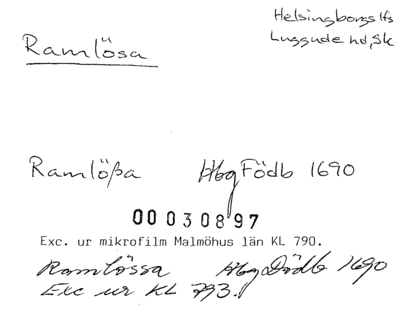 Ramlösa
Helsingborgs lfs
Luggude hd, Sk
Ramlößa Hbg Födb 1690
00 030897
Exc. ur mikrofilm Malmöhus län KL 790.
Ramlössa Hbg Dödb 1690
Exc ur KL 793.